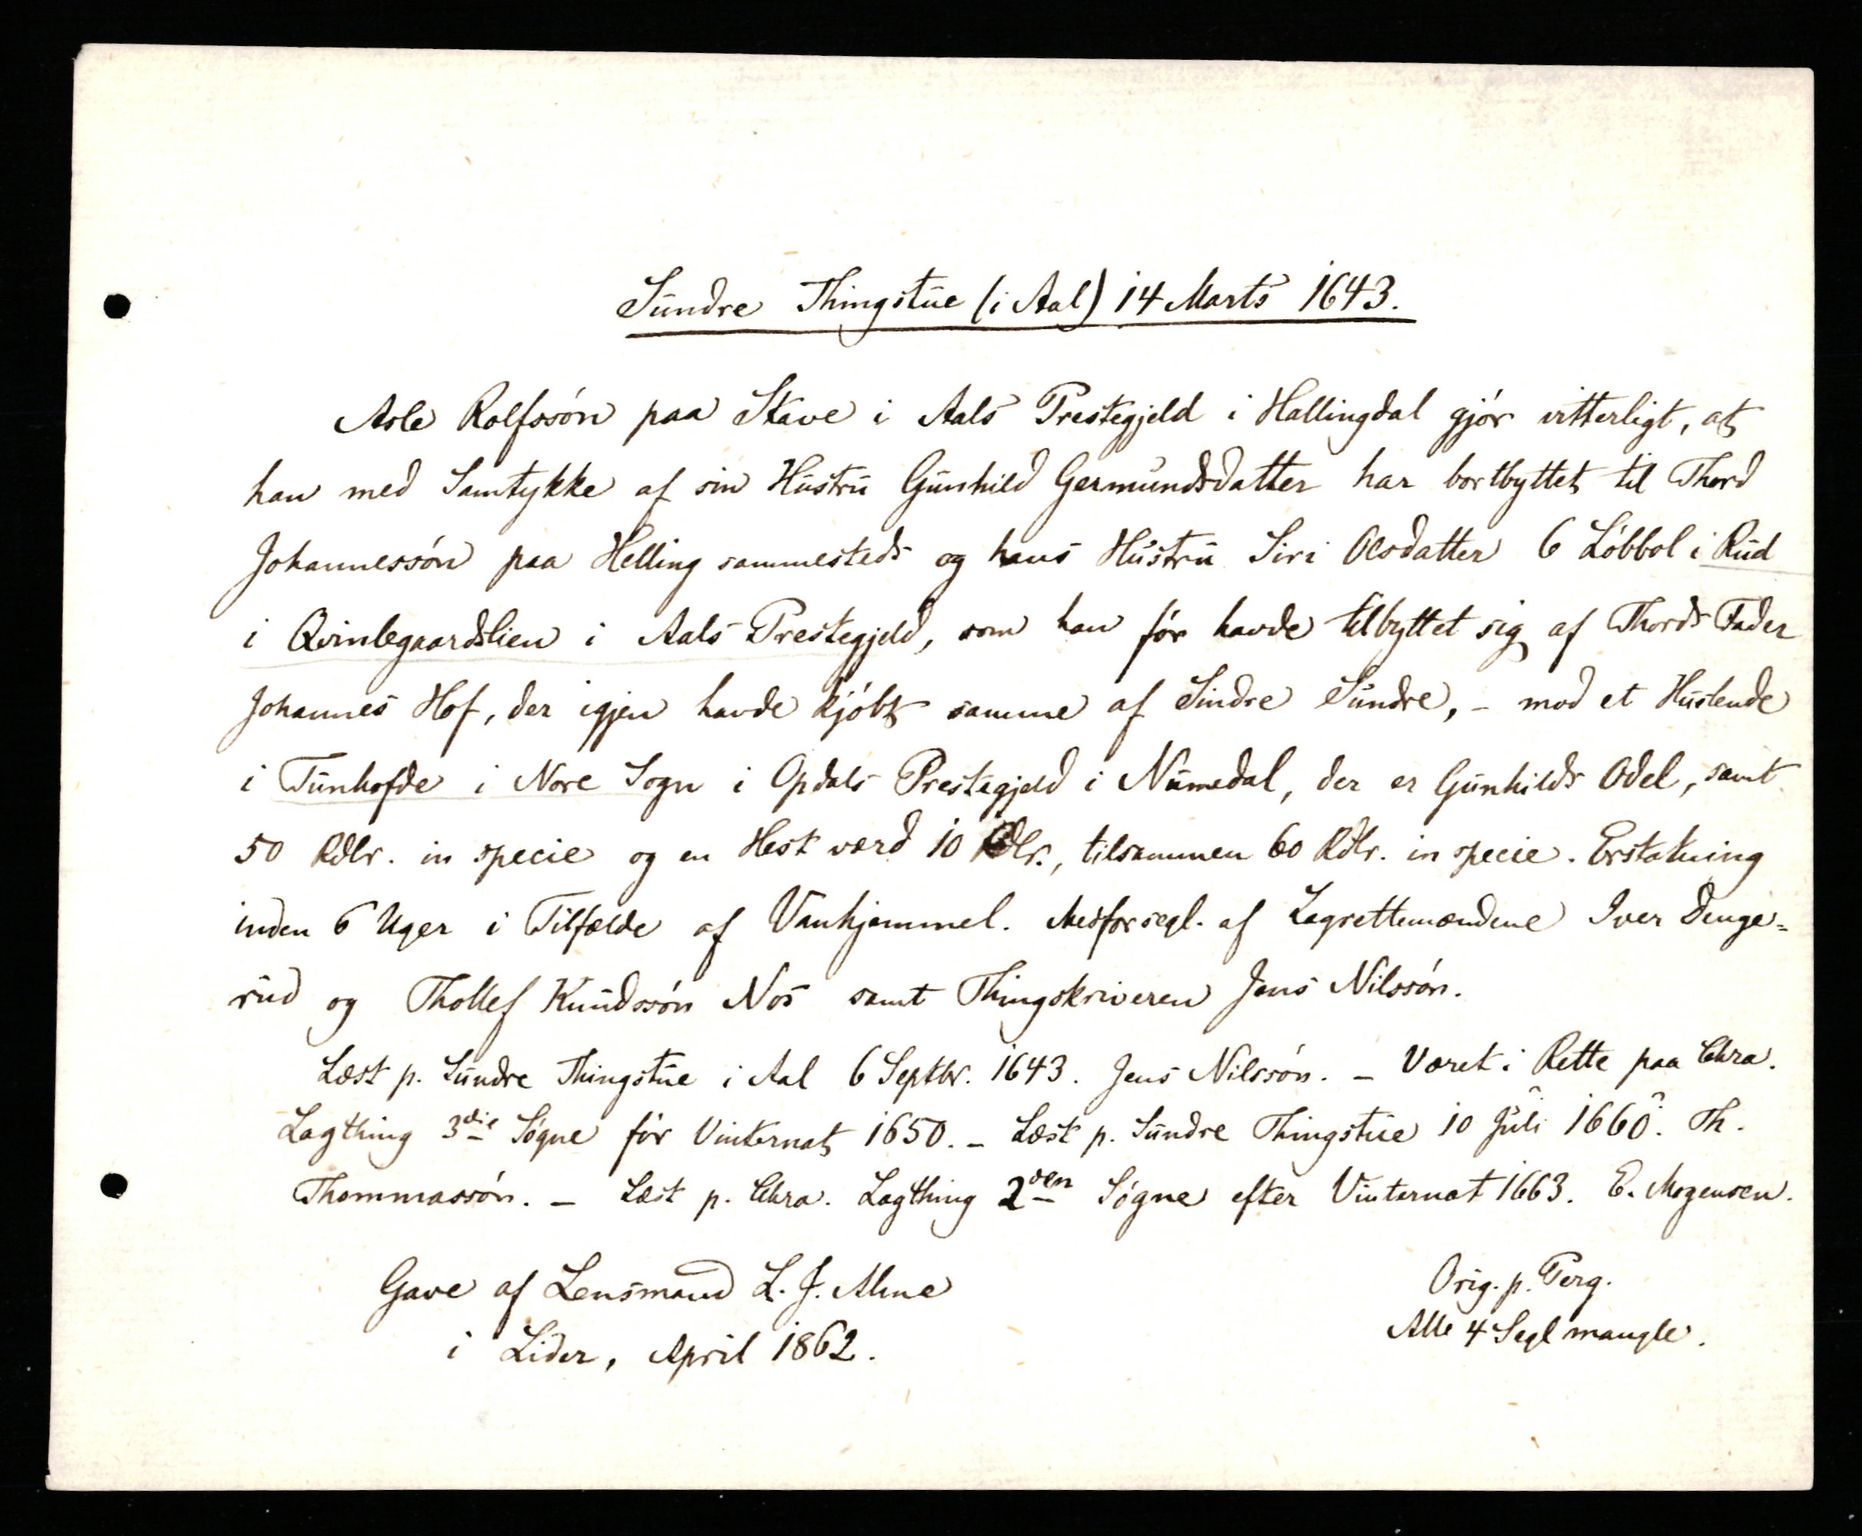 Sundre Thingstue (i Aal) 14 Marts 1643.
Asle Rolfssón paa Stave i Aals Prestegjeld i Hallingdal gjór vitterligt, at
han med Samtykke af sin Hustru Gunhild Germundsdatter har bortbyttet til Thord
Johannessón paa Helling sammesteds og hans Hustru Siri Olsdatter 6 Lóbbol i Rud
i Qvinlegaardslien i Aals Prestegjeld, som han fór havde tilbyttet sig af Thords Fader
Johannes Hof, der igjen havde kjóbt samme af Sindre Sundre, - mod et Huslende
i Tunhofde i Nore Sogn i Opdals Prestegjeld i Numedal, der er Gunhilds Odel, samt
50 Rdlr. in specie og en Hest værd 10 Rdlr., tilsammen 60 Rdlr. in specie. Erstatning
inden 6 Uger i Tilfælde af Vanhjemmel. Medforsegl. af Lagrettemændene Iver Denge-
rud og Thollef Knudssón Nos samt Thingskriveren Jens Nilssón.
Læst p. Sundre Thingstue i Aal 6 Septbr. 1643. Jens Nilssón. - Været i Rette paa Chra.
Lagthing 3die Sógne fór Vinternat 1650. - Læst p. Sundre Thingstue 10 Juli 1660. Th.
Thommassón. - Læst p. Chra. Lagthing 2den Sógne efter Vinternat 1663. E. Mogensen.
Gave af Lensmand L. J. Alme
i Lider, April 1862.
Orig. p. Perg.
Alle 4 Segl mangle.